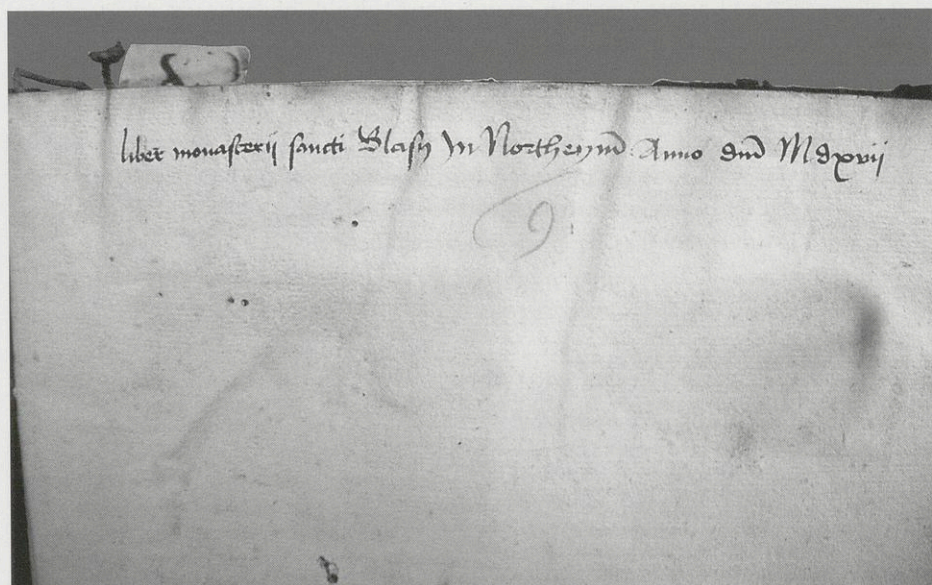 liber monasterii sancti Blasij In Northeym̄ Anno dm̄ Mdxvii